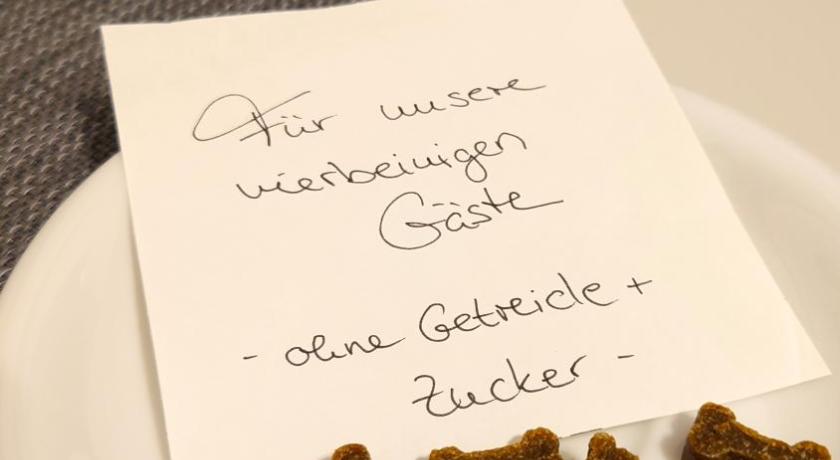 Für unsere
vierbeinigen
Gäste
- ohne Getreide +
Zucker -